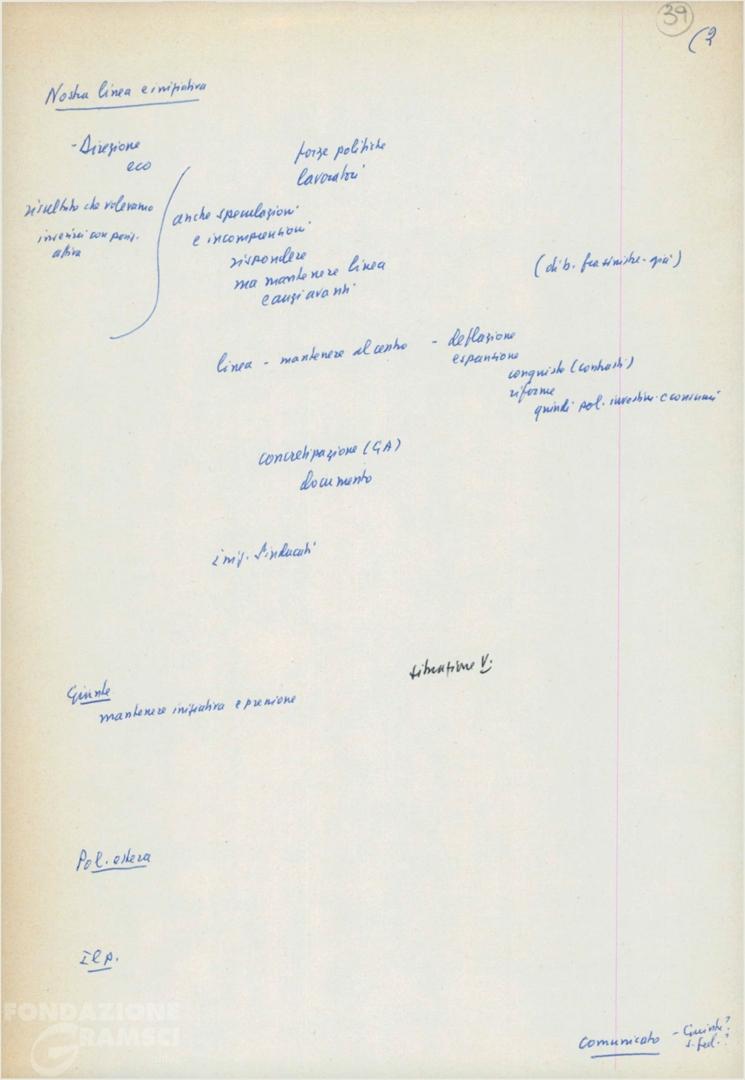 39
(2
Nostra linea e iniziativa
- Direzione
eco
forze politiche
lavoratori
risultato che volevamo
inserirci con posiz.
attiva
anche speculazioni
e incomprensioni
rispondere
ma mantenere linea
e anzi avanti
(dib. fra sinistre - qui)
linea - mantenere al centro - deflazione
espansione
conquista (contrasti)
riforme
quindi pol. investim. e consumi
concretizzazione (GA)
documento
iniz. Sindacati
situazione V.
Giunte
mantenere iniziativa e pressione
Pol. estera
Il p.
FONDAZIONE
GRAMSCI
Comunicato - Giunte?
s. fed.?